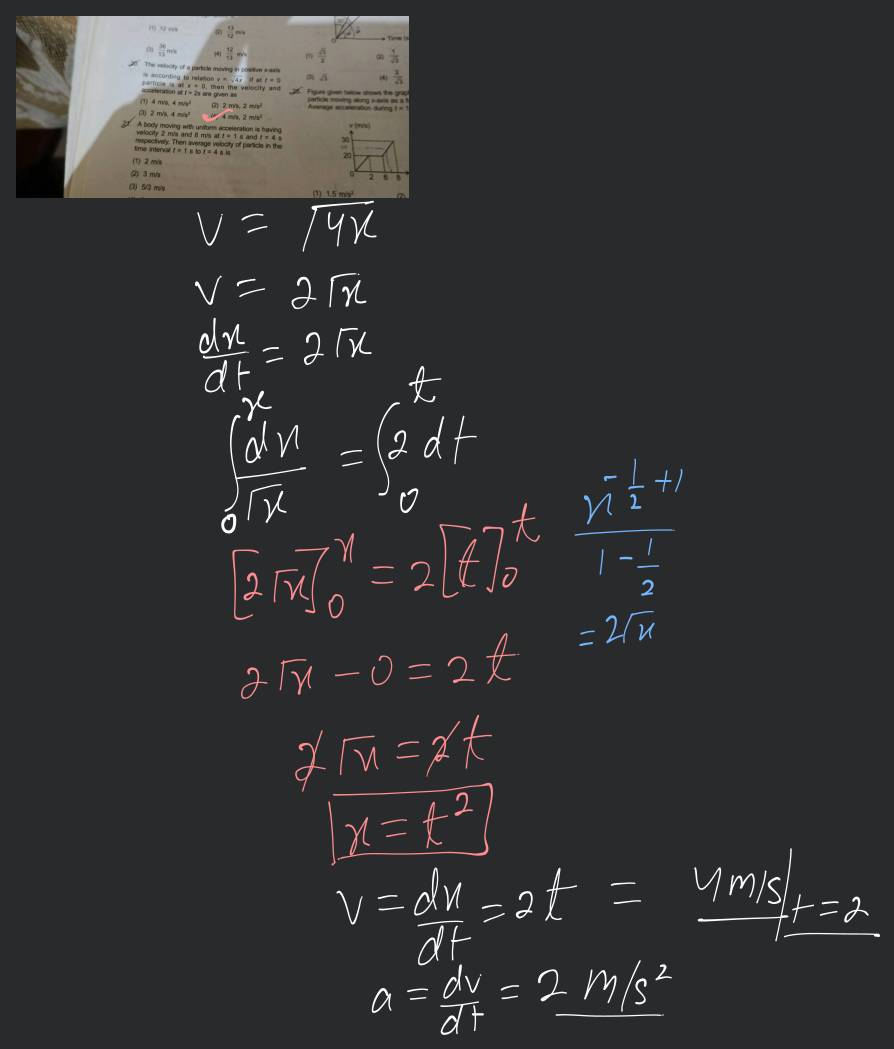 (1) 12 m/s
(2) 13/12 m/s
(3) 36/13 m/s
(4) 12/13 m/s
The velocity of a particle moving in positive x-axis
is according to relation v = √4x. If at t = 0
particle is at x = 0, then the velocity and
acceleration at t = 2s are given as
(1) 4 m/s, 4 m/s²
(2) 2 m/s, 2 m/s²
(3) 2 m/s, 4 m/s²
4 m/s, 2 m/s²
A body moving with uniform acceleration is having
velocity 2 m/s and 8 m/s at t = 1 s and t = 4 s
respectively. Then average velocity of particle in the
time interval t = 1 s to t = 4 s is
(1) 2 m/s
(2) 3 m/s
(3) 5/3 m/s
Time
(1) √3/2
(2) 1/√3
(3) √3
(4) 2/√3
Figure given below shows the grap
particle moving along x-axis as a f
Average acceleration during t = 1
v (m/s)
30
20
2 6 8
(1) 1.5 m/s²
(2)
v = √4x
v = 2√x
dx/dt = 2√x
∫₀ˣ dx/√x = ∫₀ᵗ 2 dt
[2√x]₀ˣ = 2[t]₀ᵗ
x^(-1/2 + 1) / (1 - 1/2)
= 2√x
2√x - 0 = 2t
2√x = 2t
x = t²
v = dx/dt = 2t = 4 m/s | t = 2
a = dv/dt = 2 m/s²